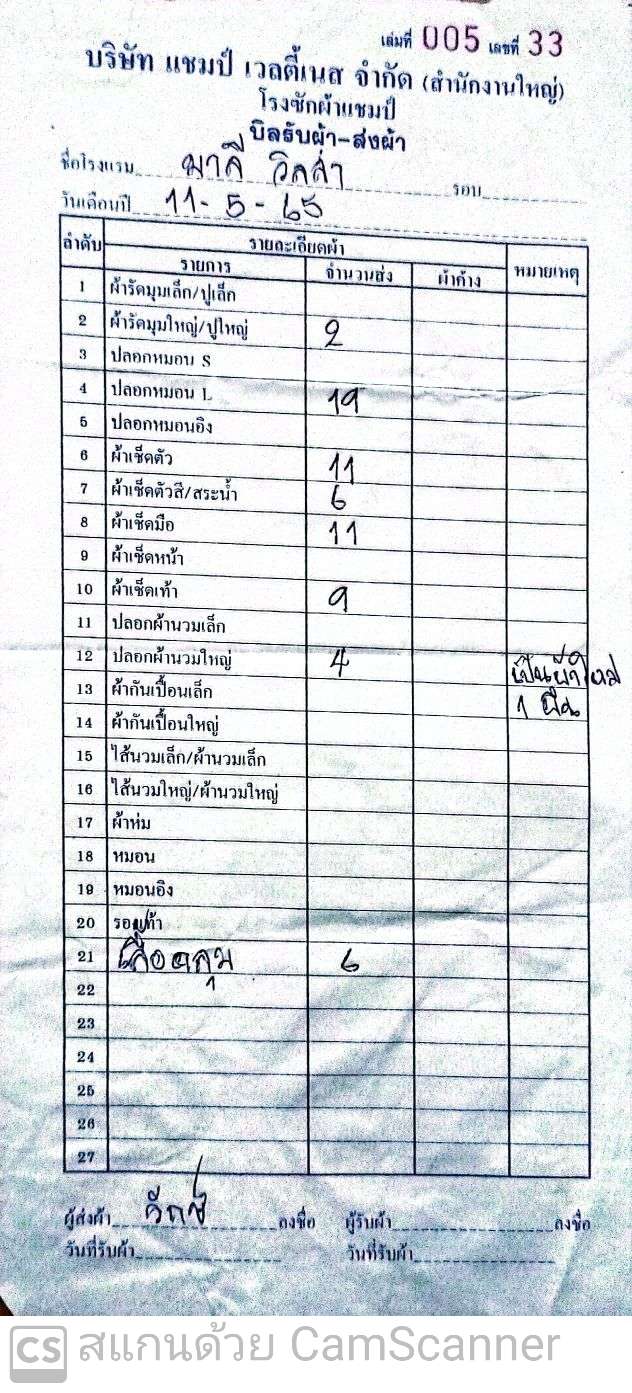 เล่มที่ 005 เลขที่ 33
บริษัท แชมป์ เวลตี้เนส จำกัด (สำนักงานใหญ่)
โรงซักผ้าแชมป์
บิลรับผ้า-ส่งผ้า
ชื่อโรงแรม มาลี วิลล่า รอบ
วันเดือนปี 11-5-65
ลำดับ รายละเอียดผ้า หมายเหตุ
รายการ จำนวนส่ง ผ้าค้าง
1 ผ้ารัดมุมเล็ก/ปูเล็ก
2 ผ้ารัดมุมใหญ่/ปูใหญ่ 2
3 ปลอกหมอน S
4 ปลอกหมอน L 19
5 ปลอกหมอนอิง
6 ผ้าเช็ดตัว 11
7 ผ้าเช็ดตัวสี/สระน้ำ 6
8 ผ้าเช็ดมือ 11
9 ผ้าเช็ดหน้า
10 ผ้าเช็ดเท้า 9
11 ปลอกผ้านวมเล็ก
12 ปลอกผ้านวมใหญ่ 4 เป็นผ้าใหม่
13 ผ้ากันเปื้อนเล็ก 1 ผืน
14 ผ้ากันเปื้อนใหญ่
15 ไส้นวมเล็ก/ผ้านวมเล็ก
16 ไส้นวมใหญ่/ผ้านวมใหญ่
17 ผ้าห่ม
18 หมอน
19 หมอนอิง
20 รองเท้า
21 เสื้อคลุม 6
22
23
24
25
26
27
ผู้ส่งผ้า ลงชื่อ ผู้รับผ้า ลงชื่อ
วันที่รับผ้า วันที่รับผ้า
CS สแกนด้วย CamScanner